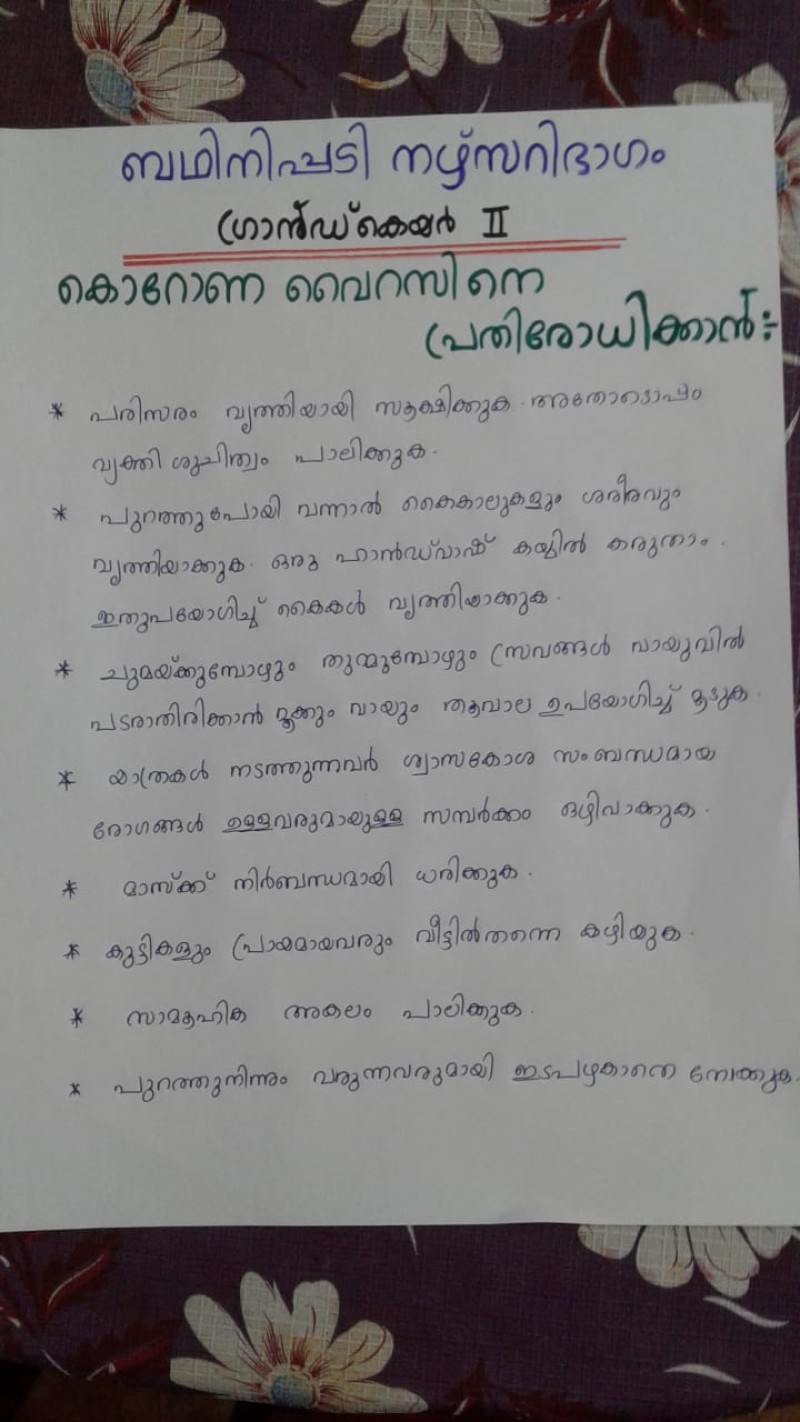 ബഥിനിപ്പടി നഴ്സറിഭാഗം
ഗ്രാൻ്ഡ്കെയർ II
കൊറോണ വൈറസിനെ
പ്രതിരോധിക്കാൻ:-
* പരിസരം വൃത്തിയായി സൂക്ഷിക്കുക. അതോടൊപ്പം
വ്യക്തി ശുചിത്വം പാലിക്കുക.
* പുറത്തുപോയി വന്നാൽ കൈകാലുകളും ശരീരവും
വൃത്തിയാക്കുക. ഒരു ഹാൻഡ്‌വാഷ് കയ്യിൽ കരുതാം.
ഇതുപയോഗിച്ച് കൈകൾ വൃത്തിയാക്കുക.
* ചുമയ്ക്കുമ്പോഴും തുമ്മുമ്പോഴും സ്രവങ്ങൾ വായുവിൽ
പടരാതിരിക്കാൻ മൂക്കും വായും തൂവാല ഉപയോഗിച്ച് മൂടുക.
* യാത്രകൾ നടത്തുന്നവർ ശ്വാസകോശ സംബന്ധമായ
രോഗങ്ങൾ ഉള്ളവരുമായുള്ള സമ്പർക്കം ഒഴിവാക്കുക.
* മാസ്ക്ക് നിർബന്ധമായി ധരിക്കുക.
* കുട്ടികളും പ്രായമായവരും വീട്ടിൽതന്നെ കഴിയുക.
* സാമൂഹിക അകലം പാലിക്കുക.
* പുറത്തുനിന്നും വരുന്നവരുമായി ഇടപഴകാതെ നോക്കുക.